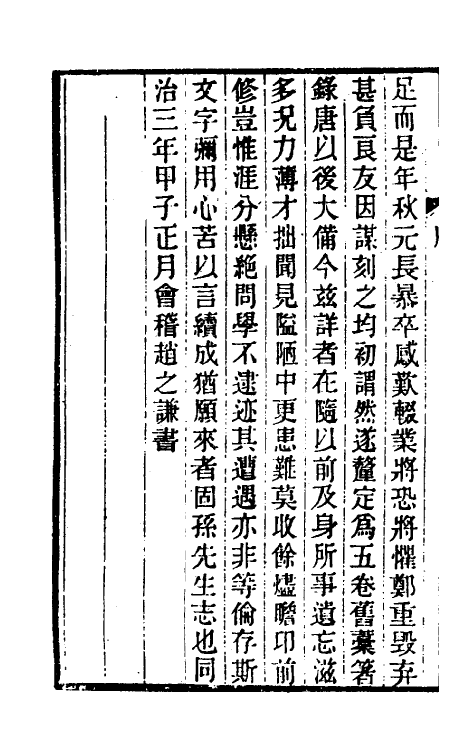 足而是年秋元長暴卒感歎輟業將恐將懼鄭重毀弃
甚負良友因謀刻之均初謂然遂釐定爲五卷舊藁箸
錄唐以後大備今玆詳者在隨以前及身所事遺忘滋
多況力薄才拙聞見隘陋中更患難莫收餘燼瞻卬前
修豈惟涯分懸絶問學不逮迹其遭遇亦非等倫存斯
文字彌用心苦以言續成猶願來者固孫先生志也同
治三年甲子正月會稽趙之謙書